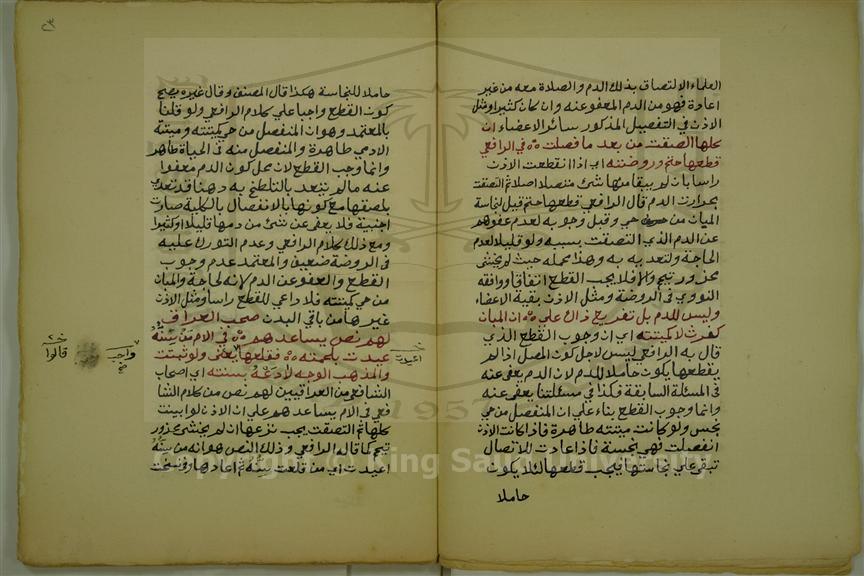 العلماء الالتصاق بذلك الدم والصلاة معه من غير
اعادة فهو من الدم المعفو عنه وان كان كثيرا ومثل
الاذن في التفصيل المذكور سائر الاعضاء ان
كلها الصقت من بعد ما فصلت ٥٥ في الرافعي
قطعها حتم وروضته اي اذا انقطعت الاذن
راسا بان لم يبق منها شئ متصلا اصلا ثم التصقت
بحرارت الدم قال الرافعي قطعها حتم قيل لنجاسة
المبان من حي وقيل وجوبه لعدم عفوهم
عن الدم الذي التصقت بسببه ولو قليلا لعدم
الحاجة ولتعديه به وهذا محله حيث لم يخش
محذور تيمم والا فلا يجب القطع اتفاقا ووافقه
النووي في الروضة ومثل الاذن بقية الاعضاء
وليس للدم بل تفريع ذاك علي ٥٥ ان المبان
كفرث لا كميتته اي ان وجوب القطع الذي
قال به الرافعي ليس لاجل كون المصل اذا لم
يقطعها يكون حاملا للدم لان الدم يعفي عنه
في المسئلة السابقة فكذا في مسئلتنا يعفي عنه
وانما وجوب القطع بناء علي ان المنفصل من حي
نجس ولو كانت ميتته طاهرة فاذا كانت الاذن
انفصلت فهي نجسة فاذا عادت للاتصال
تبقي علي نجاستها فيجب قطعها لئلا يكون
حاملا
حاملا للنجاسة هكذا قال المصنف وقال غيره يصح
كون القطع واجبا علي كلام الرافعي ولو قلنا
بالمعتمد وهو ان المنفصل من حي كميتته وميتة
الادمي طاهرة والمنفصل منه في الحياة طاهر
وانما وجب القطع لان محل كون الدم معفوا
عنه ما لم يتعد بالتلطخ به وهنا قد تعدي
بلصقها مع كونها بالانفصال بالكلية صارت
اجنبية فلا يعفي عن شئ من دمها قليلا او كثيرا
ومع ذلك كلام الرافعي وعدم التورك عليه
في الروضة ضعيف والمعتمد عدم وجوب
القطع والعفو عن الدم لانه لحاجة والمبان
من حي كميتته فلا داعي للقطع راسا ومثل الاذن
غيرها من باقي البدن صحب العراق
لهم نص يساعدهم ٥٥ في الام من سنه
عيدت بلحمته ٥٥ فقلعها يعني ولو ثبتت
والمذهب الوجه لا دعه بسنته اي اصحاب
الشافعي من العراقيين لهم نص من كلام الشا
فعي في الام يساعدهم علي ان الاذن لو ابينت
كلها ثم التصقت يجب نزعها ان لم يخش محذور
تيمم كما قاله الرافعي وذلك النص هو انه من سنه
اعيدت اي من قلعت سنه ثم اعادها
اعيدت
واجب
صح
قالوا